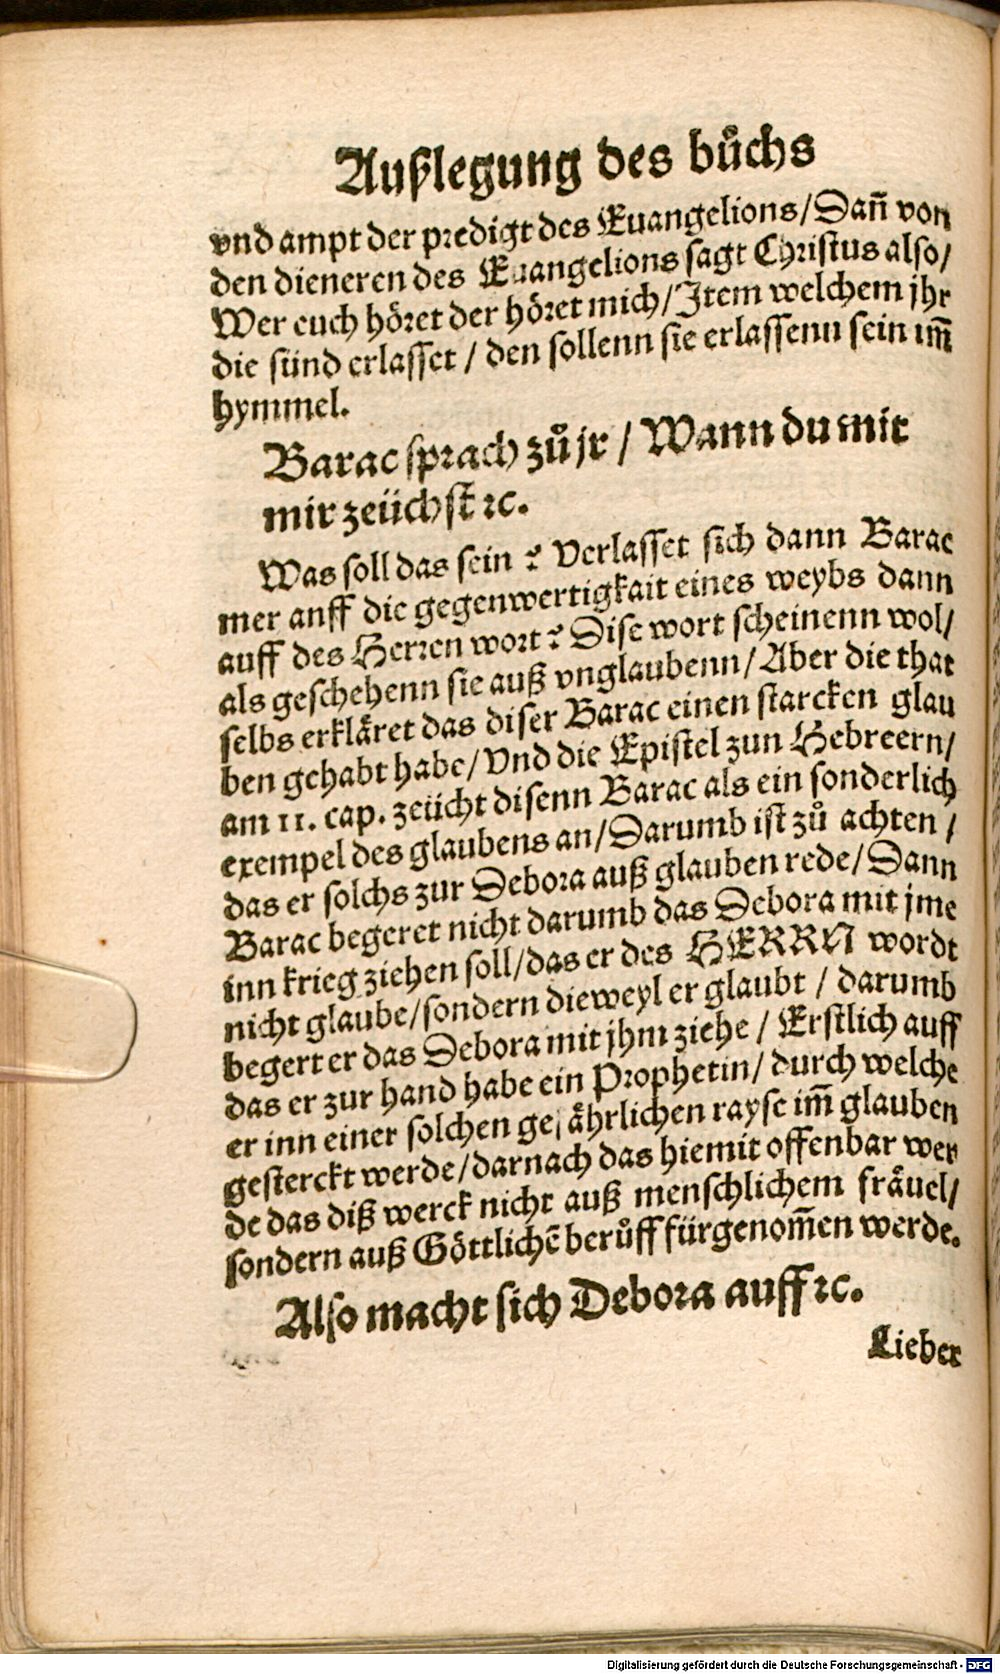 Außlegung des bůchs
vnd ampt der predigt des Euangelions/Dañ von
den dieneren des Euangelions sagt Christus also/
Wer euch höret der höret mich/Item welchem jhr
die sünd erlasset / den sollenn sie erlassenn sein im̃
hymmel.
Barac sprach zů jr / Wann du mit
mir zeüchst ꝛc.
Was soll das sein ? Verlasset sich dann Barac
mer anff die gegenwertigkait eines weybs dann
auff des Herren wort? Dise wort scheinenn wol/
als geschehenn sie auß vnglaubenn/Aber die that
selbs erkläret das diser Barac einen starcken glau
ben gehabt habe/Vnd die Epistel zun Hebreern/
am 11. cap. zeücht disenn Barac als ein sonderlich
exempel des glaubens an/Darumb ist zů achten /
das er solchs zur Debora auß glauben rede/Dann
Barac begeret nicht darumb das Debora mit jme
inn krieg ziehen soll/das er des HERRN wordt
nicht glaube/sondern dieweyl er glaubt / darumb
begert er das Debora mit jhm ziehe / Erstlich auff
das er zur hand habe ein Prophetin/durch welche
er inn einer solchen gefährlichen rayse im̃ glauben
gesterckt werde/darnach das hiemit offenbar wer
de das diß werck nicht auß menschlichem fräuel/
sondern auß Göttlichē berůff fürgenom̃en werde.
Also macht sich Debora auff ꝛc.
Lieber
Digitalisierung gefördert durch die Deutsche Forschungsgemeinschaft - DFG